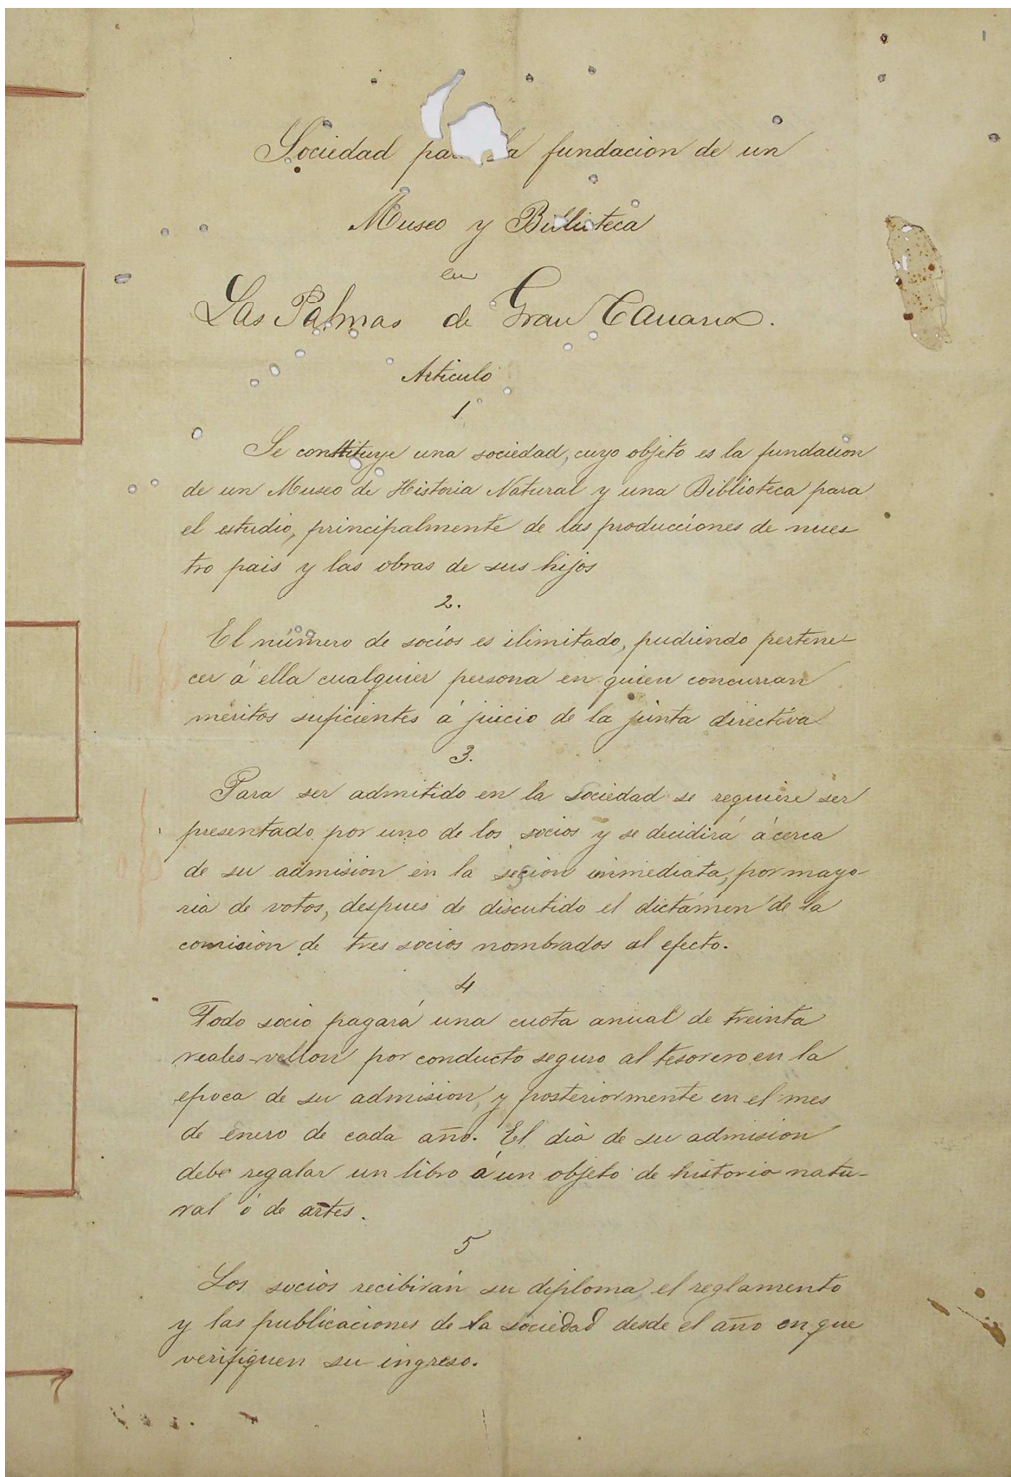 Sociedad pa la fundacion de un
Museo y Biblioteca
en
Las Palmas de Gran Canaria.
Articulo
1
Se constituye una sociedad, cuyo objeto es la fundacion
de un Museo de Historia Natural y una Biblioteca para
el estudio, principalmente de las producciones de nues
tro pais y las obras de sus hijos
2.
El número de socios es ilimitado, pudiendo pertene-
cer á ella cualquier persona en quien concurran
méritos suficientes á juicio de la junta directiva
3.
Para ser admitido en la Sociedad se requiere ser
presentado por uno de los socios y se decidirá ácerca
de su admision en la sesion inmediata, por mayo-
ria de votos, despues de discutido el dictámen de la
comision de tres socios nombrados al efecto.
4
Todo socio pagará una cuota anual de treinta
reales-vellon por conducto seguro al tesorero en la
epoca de su admision, y posteriormente en el mes
de enero de cada año. El dia de su admision
debe regalar un libro á un objeto de historia natu-
ral ó de artes.
5
Los socios recibirán su diploma, el reglamento
y las publicaciones de la sociedad desde el año en que
verifiquen su ingreso.